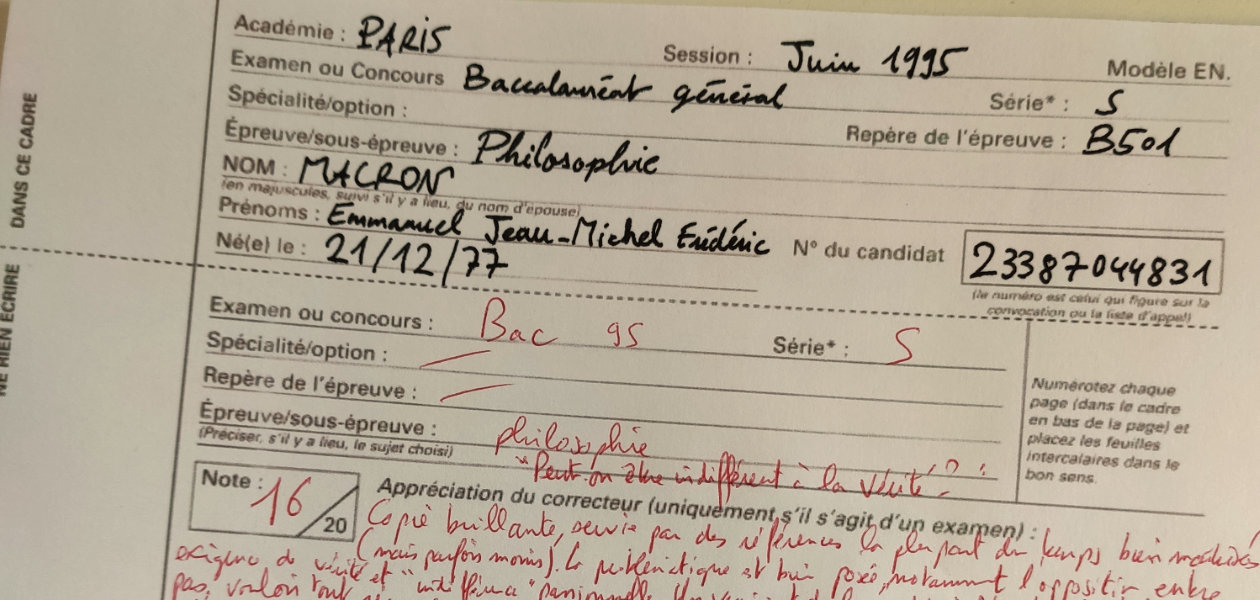 Académie : PARIS Session : Juin 1995 Modèle EN.
Examen ou Concours Baccalauréat général Série* : S
Spécialité/option : Repère de l'épreuve : B501
Épreuve/sous-épreuve : Philosophie
NOM : MACRON
(en majuscules, suivi s'il y a lieu, du nom d'épouse)
Prénoms : Emmanuel Jean-Michel Frédéric N° du candidat 23387044831
Né(e) le : 21/12/77
(le numéro est celui qui figure sur la
convocation ou la liste d'appel)
DANS CE CADRE
NE RIEN ÉCRIRE
Examen ou concours : Bac 95 Série* : S
Spécialité/option :
Repère de l'épreuve :
Épreuve/sous-épreuve : philosophie
(Préciser, s'il y a lieu, le sujet choisi) "Peut-on être indifférent à la vérité"?
Numérotez chaque
page (dans le cadre
en bas de la page) et
placez les feuilles
intercalaires dans le
bon sens.
Note : 16/20
Appréciation du correcteur (uniquement s'il s'agit d'un examen) :
Copie brillante, servie par des références la plupart du temps bien maîtrisées
(mais parfois moins). La problématique est bien posée, notamment l'opposition entre
exigence de vérité et "indifférence"
pas, vouloir tout